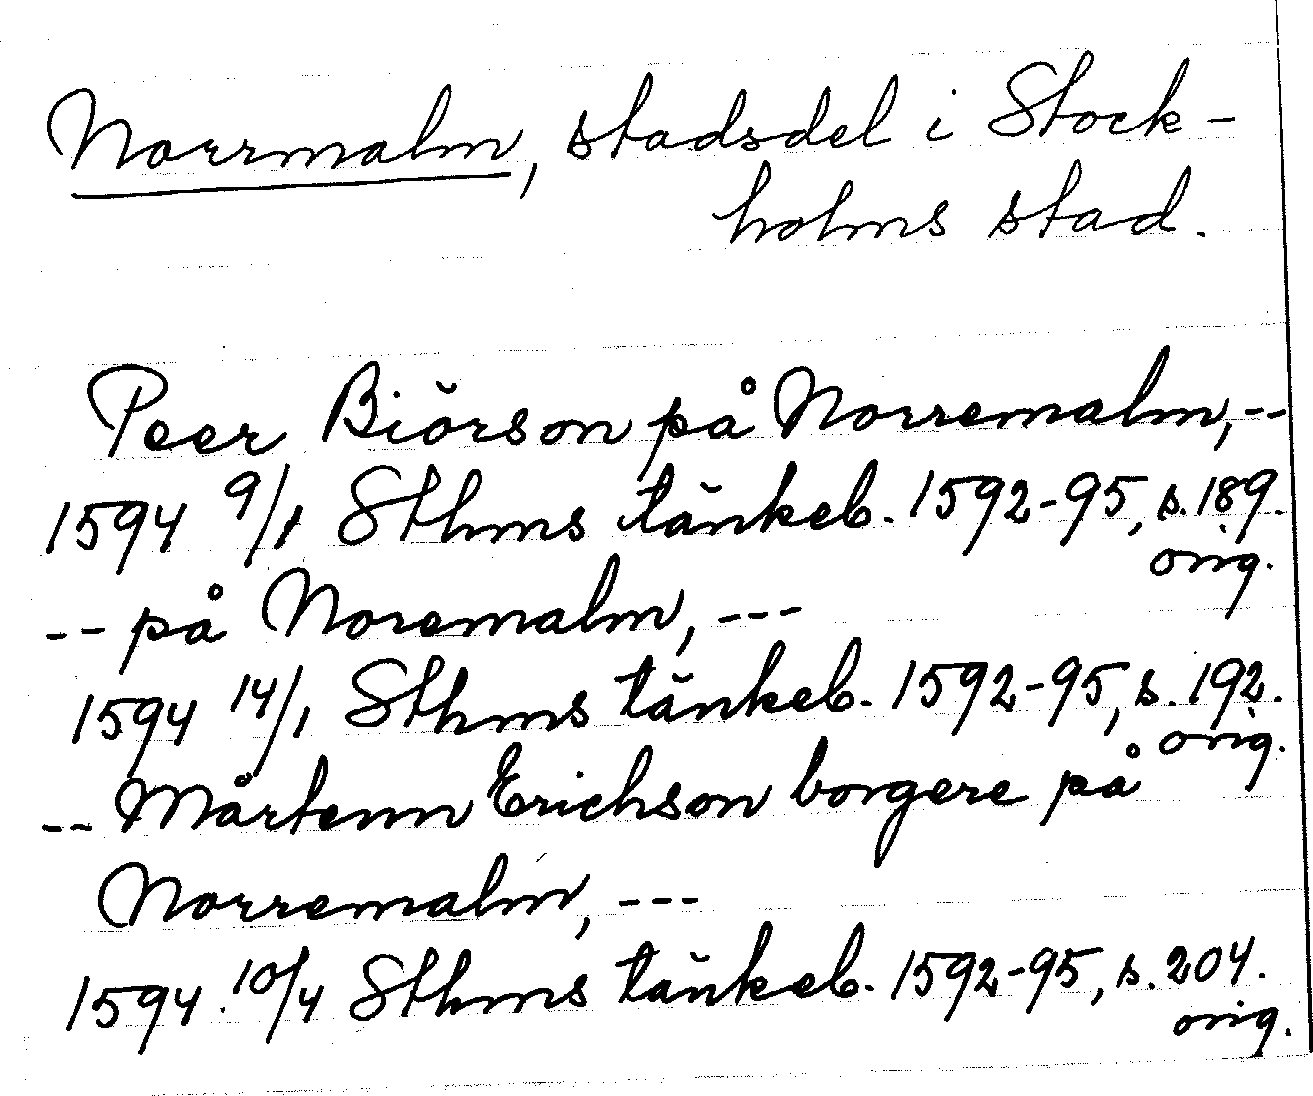 Norrmalm, stadsdel i Stock-
holms stad.
Peer Biörson på Norremalm,--
1594 9/1 Sthms tänkeb. 1592-95, s. 189.
orig.
-- på Noremalm, ---
1594 14/1 Sthms tänkeb. 1592-95, s. 192.
orig.
-- Mårtenn Erichson borgere på
Norremalm, ---
1594 10/4 Sthms tänkeb. 1592-95, s. 204.
orig.